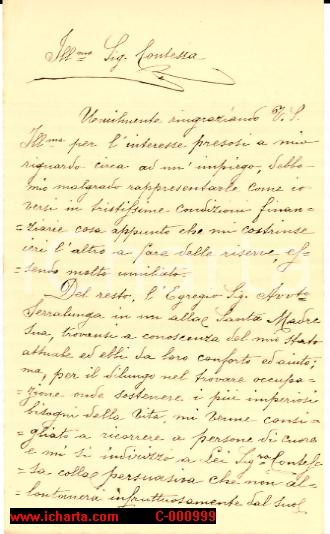 Ill.ma Sig. Contessa
Umilmente ringraziando V. S.
Ill.ma per l'interesse presosi a mio
riguardo circa ad un'impiego, debbo
mio malgrado rappresentarle come io
versi in tristissime condizioni finan=
=ziarie cosa appunto che mi costrinse
ieri l'altro a fare delle riserve, es=
=sendo molto umiliato.
Del resto, l'Egregio Sig. Avv.to
Serralunga in un alla Santa Madre
sua, trovansi a conoscenza del mio stato
attuale ed ebbi da loro conforto ed aiuto;
ma, per il dilungo nel trovare occupa=
=zione onde sostenere i più imperiosi
bisogni della Vita, mi venne consi=
=gliato a ricorrere a persone di cuore
e mi si indirizzò a Lei Sig.ra Contes=
=sa colla persuasiva che non al=
=lontanerà infruttuosamente dal suo
icharta
www.icharta.com C-000999